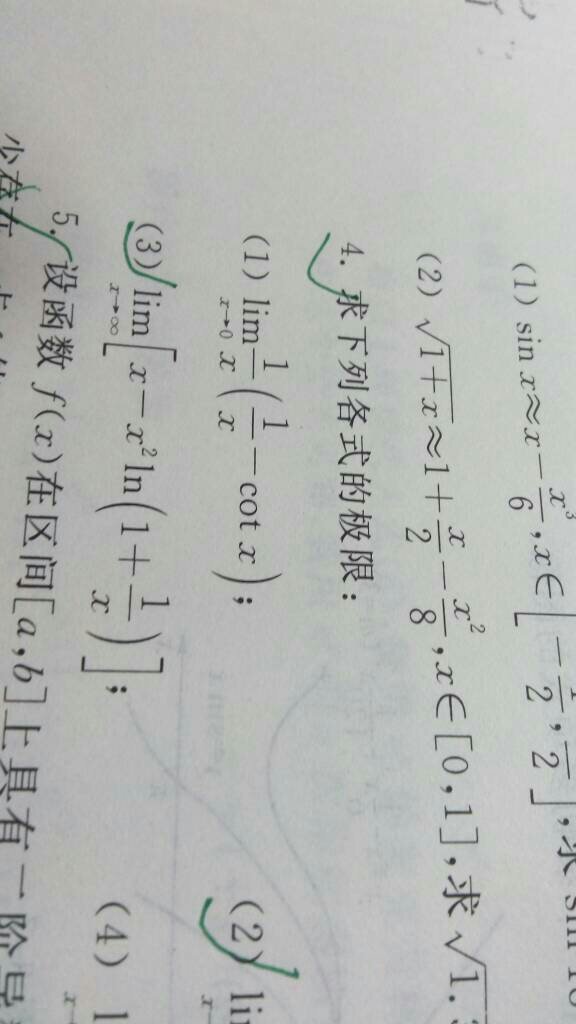 (1) sin x≈x−x³/6, x∈[−1/2, 1/2], 求 sin
(2) √(1+x)≈1+x/2−x²/8, x∈[0,1], 求 √1.
4. 求下列各式的极限:
(1) lim_{x→0} 1/x (1/x − cot x);
(2) li
(3) lim_{x→∞} [x−x² ln(1+1/x)];
(4) l
5. 设函数 f(x) 在区间[a,b]上具有一阶导